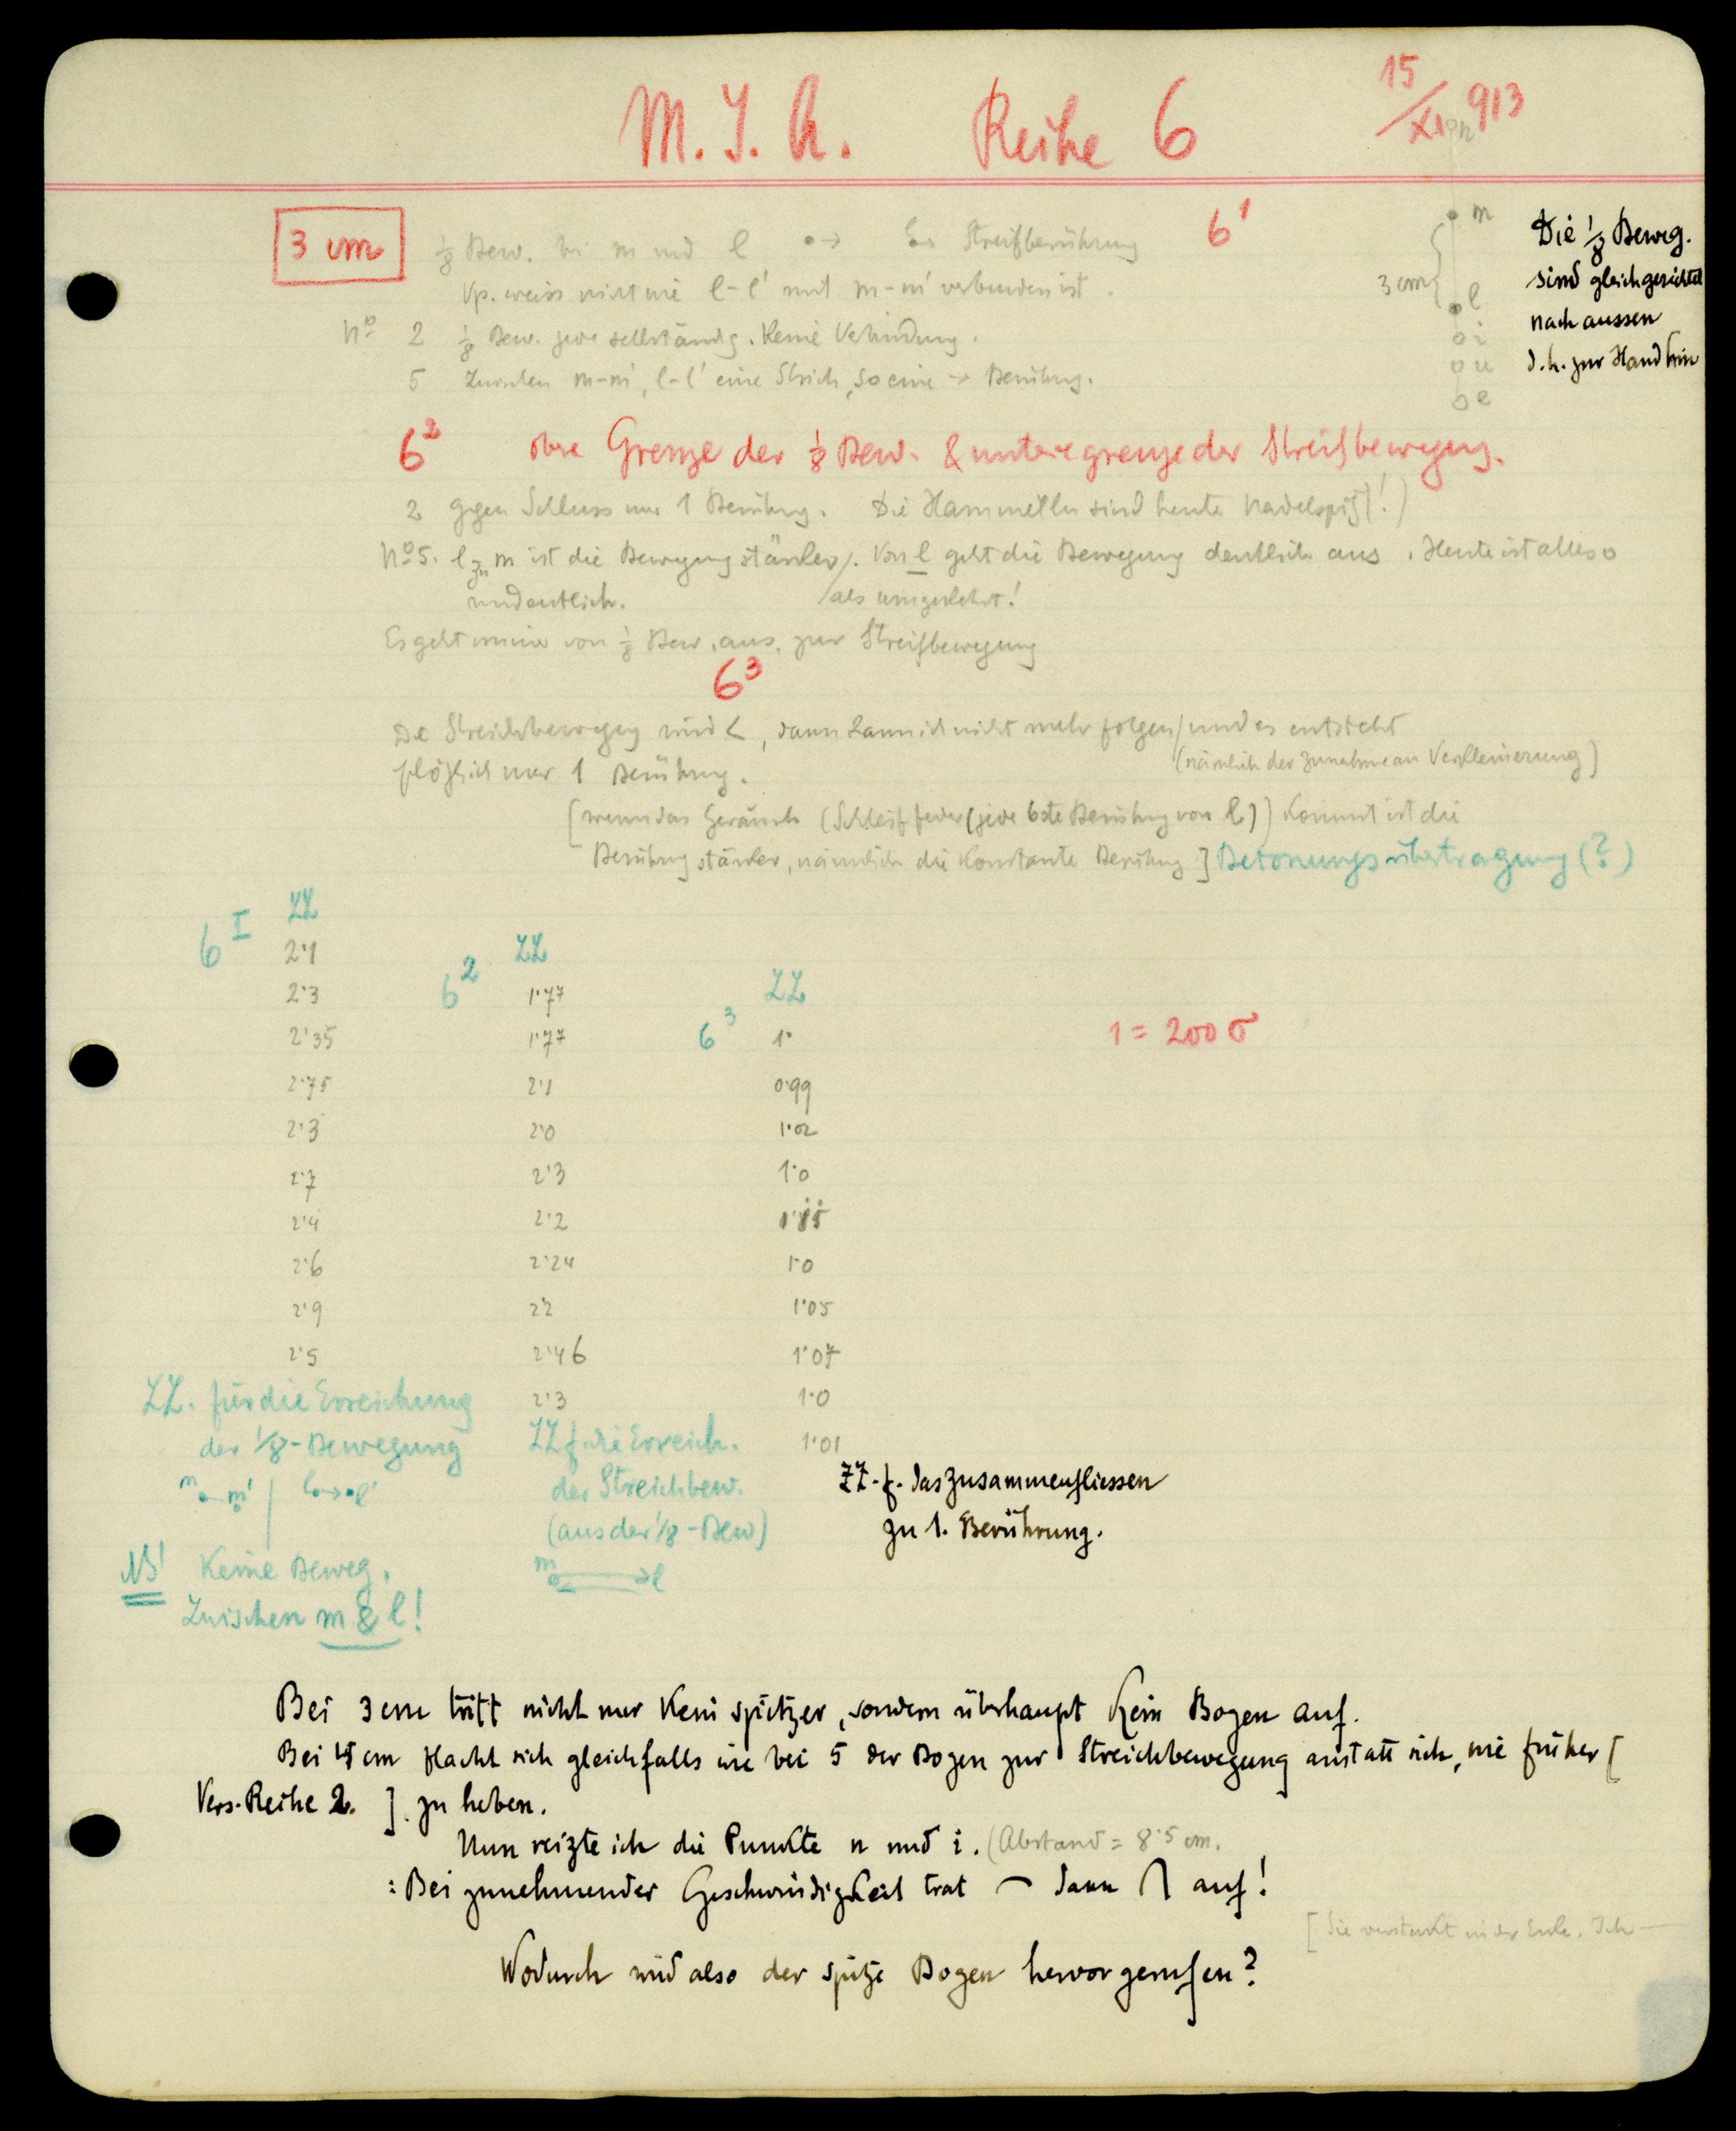 M. J. A. Reihe 6
15/XI 913
n
3 cm
1/8 Bew. bei m und l Streifberührung 6¹
Vp. weiss nicht wie l-l' mit m-m' verbunden ist.
No 2 1/8 Bew. jede selbständig. Keine Verbindung.
5 Zwischen m-m', l-l' eine Strich, so eine → Berührg.
m
3 cm
l
i
u
e
Die 1/8 Beweg.
sind gleichgerichtet
nach aussen
d.h. zur Hand hin
6² obre Grenze der 1/8 Bew. & untere grenze der Streifbewegung.
2 gegen Schluss nur 1 Berührg. Die sind heute nadelspitz(!)
No 5. l zu m ist die Bewegung stärker/. Von l geht die Bewegung deutlich aus. Heute ist alles so
undeutlich. /als umgekehrt!
Es geht immer von 1/8 Bew. aus, zur Streifbewegung
6³
Die Streichbewegung wird <, dann kann ich nicht mehr folgen/und es entsteht
(nämlich der Zunahme an Verkleinerung)
plötzlich nur 1 Berührg.
[wenn das Geräusch (Schleiffeder (jede 6ste Berührg von l)) kommt ist die
Berührg stärker, nämlich die konstante Berührg] Betonungsübertragung (?)
6ᴵ ZZ
2·1
2·3
2·35
2·75
2·3
2·7
2·4
2·6
2·9
2·5
ZZ. für die Erreichung
der 1/8-Bewegung
m m' | l→l'
NB! Keine Beweg.
Zwischen m & l!
6² ZZ
1·77
1·77
2·1
2·0
2·3
2·2
2·24
2·2
2·46
2·3
ZZ f. die Erreich.
der Streichbew.
(aus der 1/8-Bew)
m l
6³ ZZ
1·
0·99
1·02
1·0
1·0
1·05
1·07
1·0
1·01
ZZ. f. das Zusammenfliessen
zu 1. Berührung.
1 = 200 σ
Bei 3 cm tritt nicht nur kein spitzer, sondern überhaupt kein Bogen auf.
Bei 4 cm flacht sich gleichfalls wie bei 5 der Bogen zur Streichbewegung anstatt sich, wie früher [
Vers. Reihe 2. ] zu heben.
Nun reizte ich die Punkte n und i. (Abstand = 8·5 cm.
: Bei zunehmender Geschwindigkeit trat ⌒ dann auf!
[Sie in der Ich —
Wodurch wird also der spitze Bogen hervorgerufen?